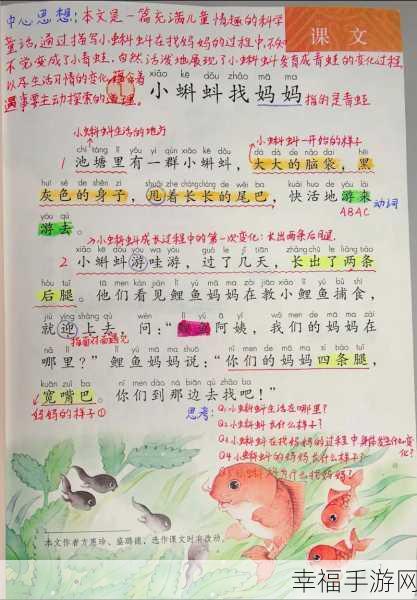 中心思想：本文是一篇充满儿童情趣的科学
童话,通过描写小蝌蚪在找妈妈的过程中,不知
不觉变成了小青蛙,自然活泼地展现了小蝌蚪发育成青蛙的变化过程
以及生活习情的变化,蕴含着
遇事要主动探索的道理。
课文
xiǎo kē dǒu zhǎo mā ma
① 小蝌蚪找妈妈 指的是青蛙
小蝌蚪生活的地方
小蝌蚪一开始的样子
chí táng lǐ yǒu yì qún xiǎo kē dǒu dà dà de nǎo dai hēi
1 池塘里有一群小蝌蚪，大大的脑袋，黑
huī sè de shēn zi shuǎi zhe cháng cháng de wěi ba kuài huo de yóu lái
灰色的身子，甩着长长的尾巴，快活地游来
yóu qù
游去。
ABAC 动词
小蝌蚪成长过程中的第一次变化：长出两条后腿
xiǎo kē dǒu yóu wa yóu guò le jǐ tiān zhǎng chū le liǎng tiáo
2 小蝌蚪游哇游，过了几天，长出了两条
hòu tuǐ tā men kàn jiàn lǐ yú mā ma zài jiāo xiǎo lǐ yú bǔ shí
后腿。他们看见鲤鱼妈妈在教小鲤鱼捕食，
jiù yíng shàng qù wèn lǐ yú ā yí wǒ men de mā ma zài
就迎上去，问：“鲤鱼阿姨，我们的妈妈在
指面对面
nǎ lǐ lǐ yú mā ma shuō nǐ men de mā ma sì tiáo tuǐ
哪里？”鲤鱼妈妈说：“你们的妈妈四条腿，
kuān zuǐ ba nǐ men dào nà biān qù zhǎo ba
宽嘴巴。你们到那边去找吧！”
妈妈的样子①
思考：
Q1 小蝌蚪生活在哪里？
Q2 小蝌蚪长什么样子？
Q3 小蝌蚪在找妈妈的过程中身体发生什么变化？
Q4 小蝌蚪的妈妈长什么样子？
Q5 小蝌蚪为什么找妈妈？
本文作者方惠珍、盛璐德，选作课文时有改动。
幸福手游网